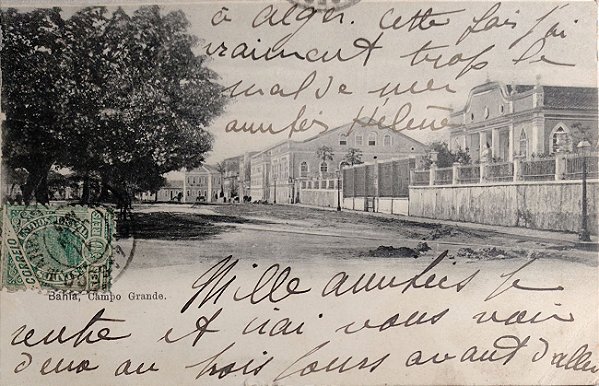 à Alger. Cette fois j'ai
vraiment trop le
mal de mer
amitiés Hélène
Bahia, Campo Grande.
Mille amitiés je
rentre et irai vous voir
deux ou trois jours avant d'aller